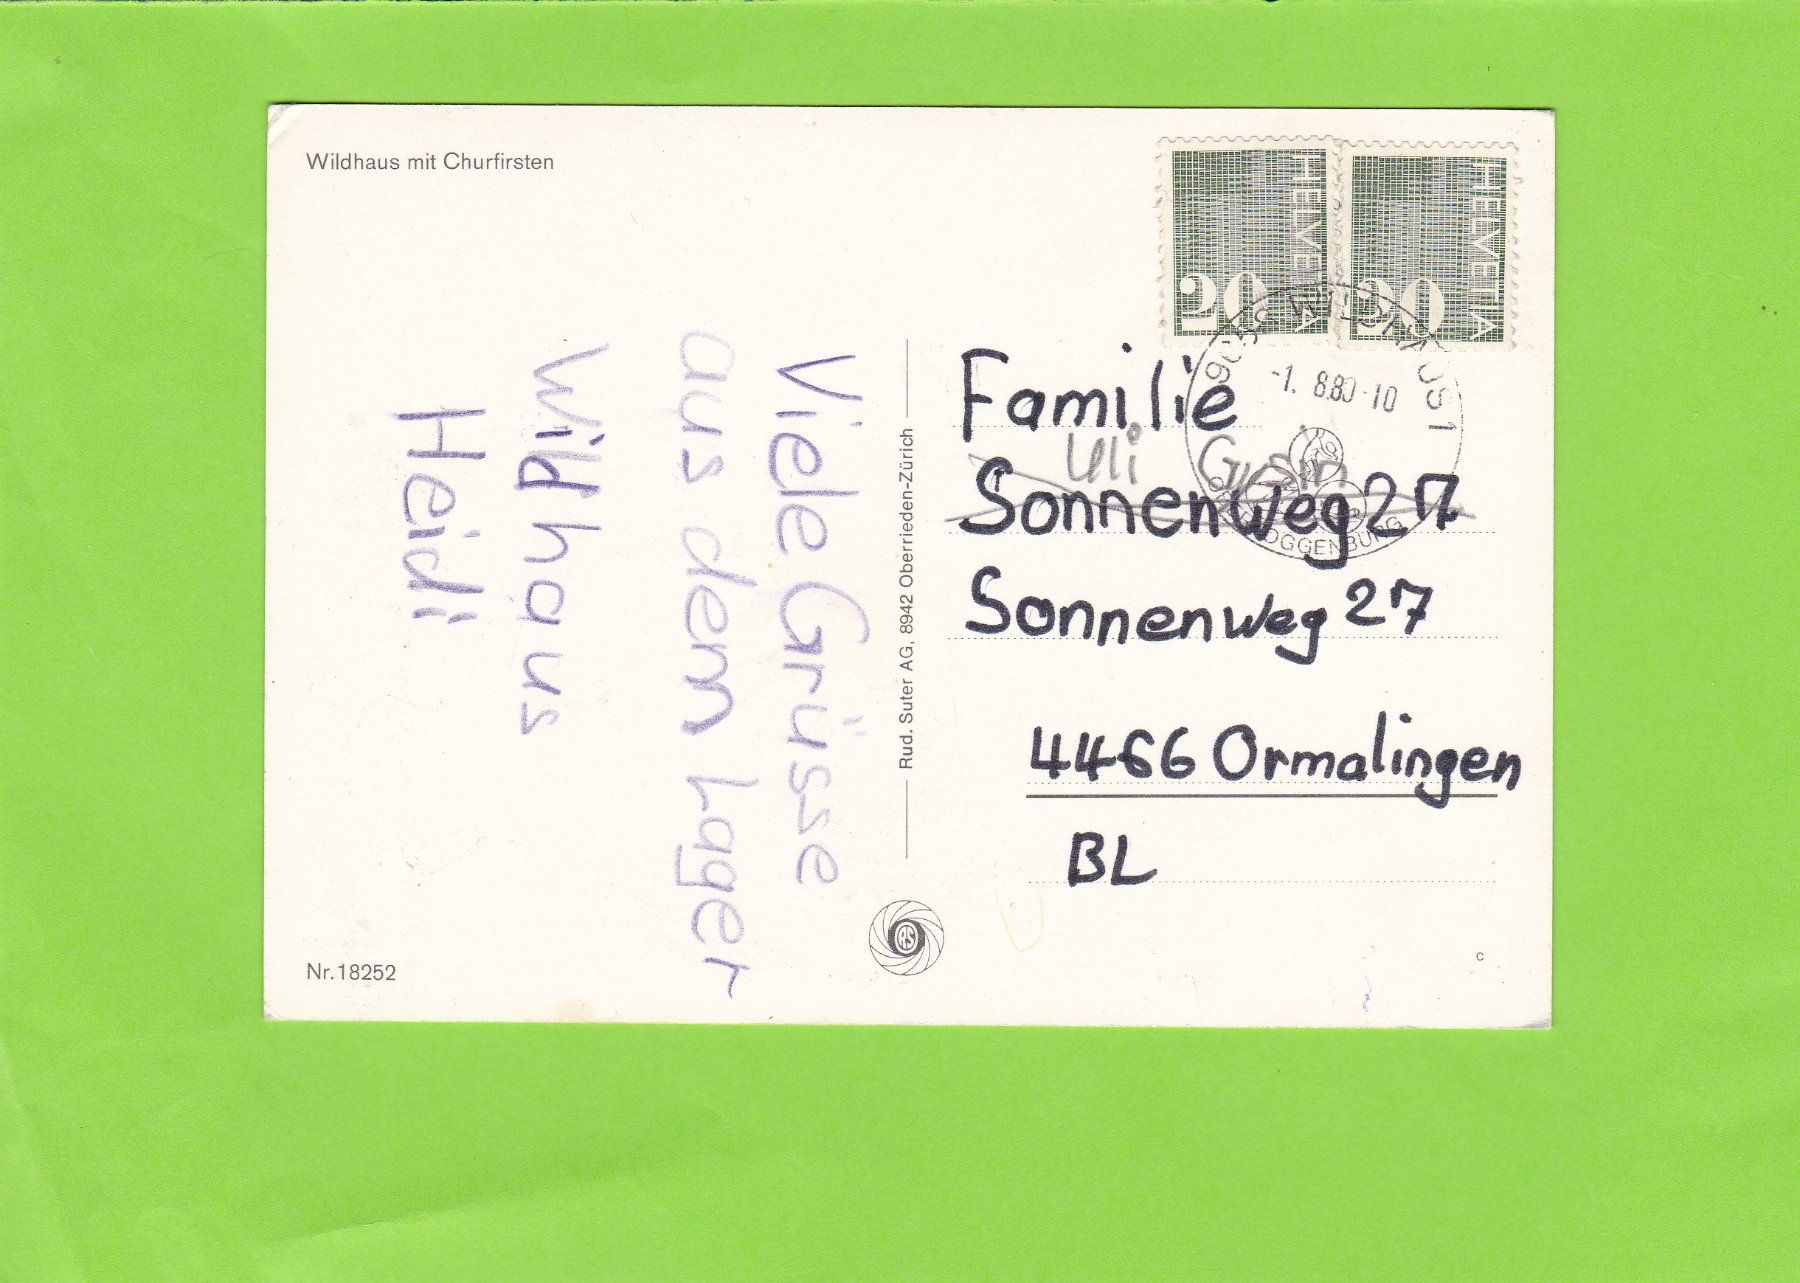 Wildhaus mit Churfirsten
HELVETIA
20
HELVETIA
20
9658 WILDHAUS 1
-1. 8.80-10
OBERTOGGENBURG
Viele Grüsse
aus dem Lager
Wildhaus
Heidi
Rud. Suter AG, 8942 Oberrieden-Zürich
RS
Familie
Uli
Sonnenweg 27
Sonnenweg 27
4466 Ormalingen
BL
Nr. 18252
C